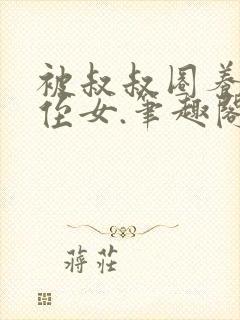 被叔叔圈养
侄女.笔趣阁
蒋莊